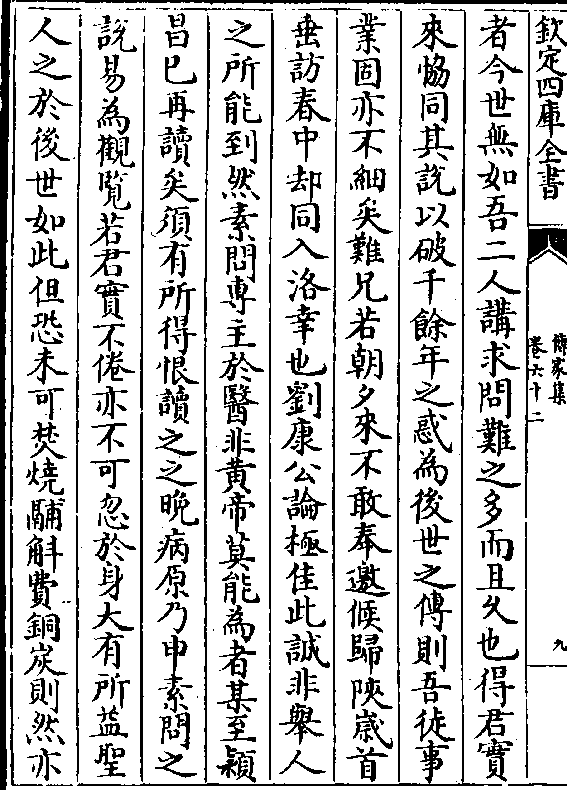 欽定四庫全書
傳家集
卷六十二
九
者今世無如吾二人講求問難之多而且久也得君實
來恊同其説以破千餘年之惑為後世之傳則吾徒事
業固亦不細矣難兄若朝夕來不敢奉邀候歸陜嵗首
垂訪春中却同入洛幸也劉康公論極佳此誠非舉人
之所能到然素問專主於醫非黄帝莫能為者某至潁
昌已再讀矣須有所得恨讀之之晚病原乃申素問之
說易為觀覧若君實不倦亦不可忽於身大有所益聖
人之於後世如此但恐未可焚燒鬴斛費銅炭則然亦